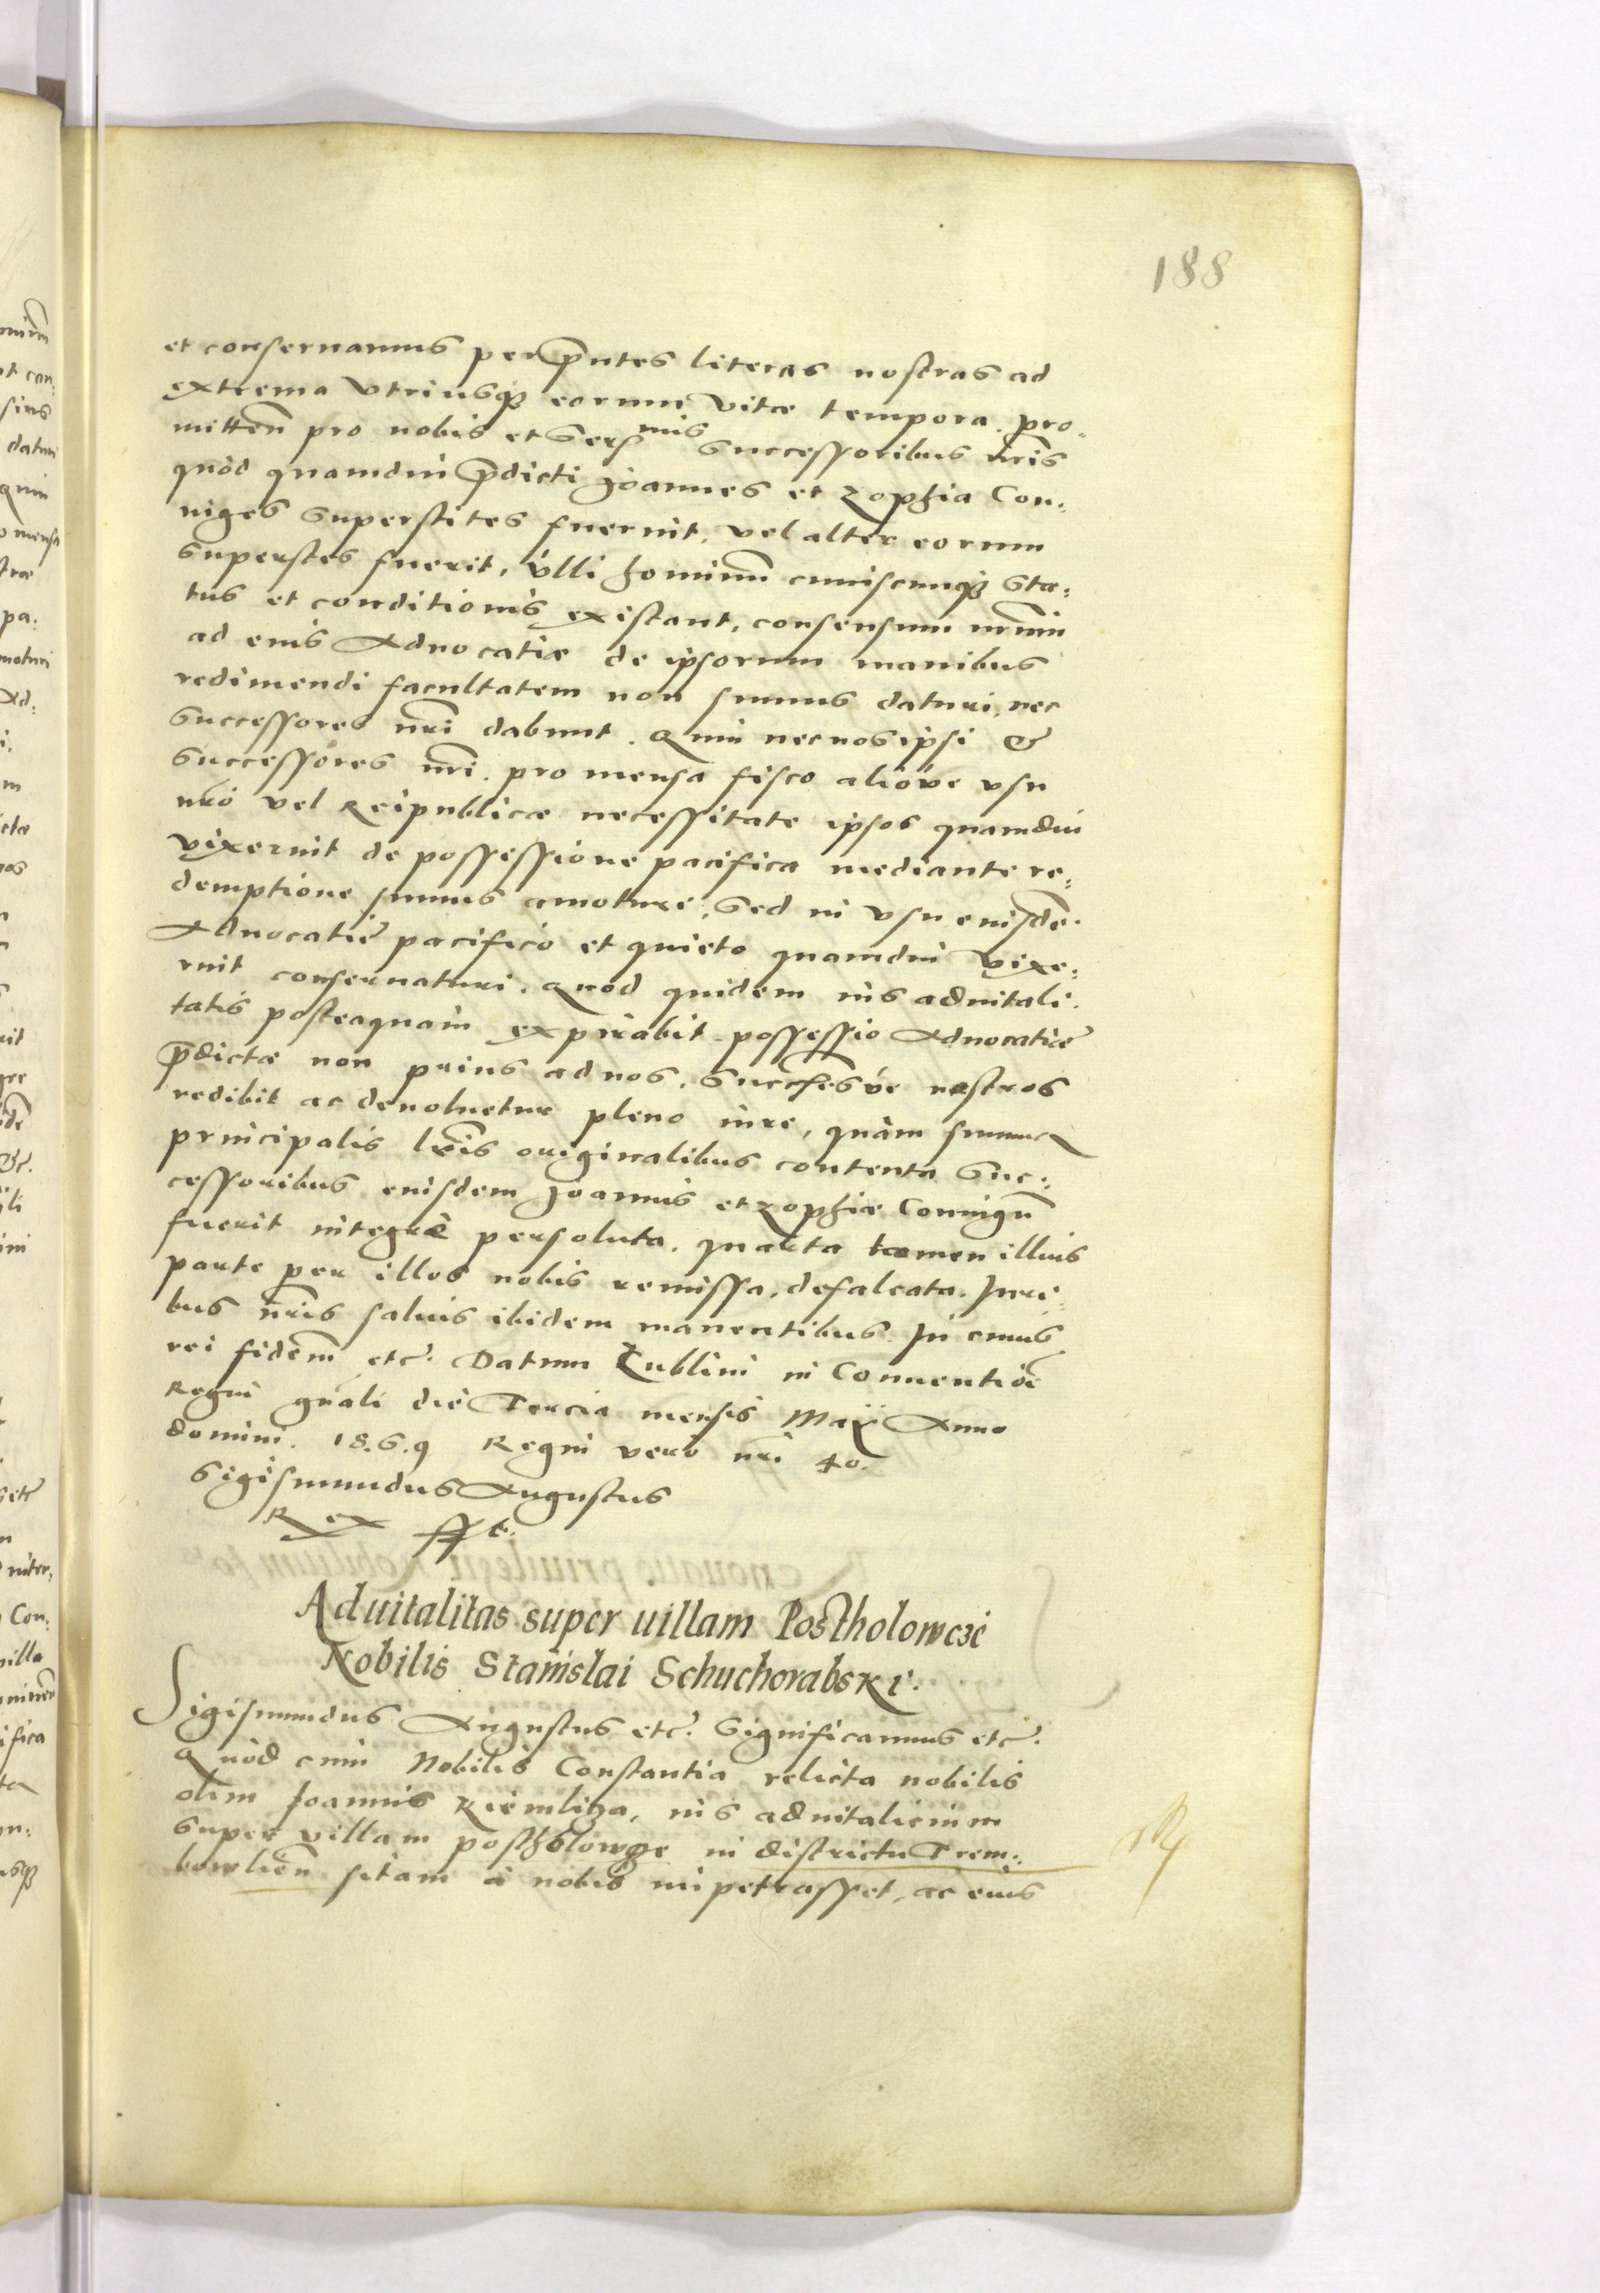 188
et conseruamus per p̃ntes literas nostras ad
extrema vtriusq̃ eorum vitæ tempora. pro-
mitteñ pro nobis et Serᵐⁱˢ Successoribus nr̃is
quòd quamdiu p̃dicti Joannes et Zophia Con-
iuges Superstites fuerint, vel alter eorum
Superstes fuerit, vlli hominũ cuiuscunq̃ Sta-
tus et conditionis existant, consensum nr̃um
ad eius Aduocatiæ de ipsorum manibus
redimendi facultatem non sumus daturi, nec
Successores nr̃i dabunt. Quin nec nos ipsi &
Successores nr̃i pro mensa fisco alióve vsu
nr̃o vel Reipublicæ necessitate ipsos quamdiu
vixerint de possessione pacifica mediante re-
demptione sumus amoturi, Sed in vsu eiusdẽ
Aduocatiæ pacifico et quieto quamdiu vixe-
rint conseruaturi. Quod quidem ius aduitali-
tatis posteaquam expirabit possessio Aduocatiæ
p̃dictæ non prius ad nos, Succesẽsve nostros
redibit ac deuoluetur pleno iure, quàm summa
principalis lr̃is originalibus contenta Suc-
cessoribus eiusdem Joannis et Zophiæ Coniugũ
fuerit integrè persoluta. quarta tamen illius
parte per illos nobis remissa, defalcata. Juri-
bus nr̃is saluis ibidem manentibus. In cuius
rei fidem̃ etc̃. Datum Lublini in Conuentiõe
Regni gñali die Tercia mensis Maÿ Anno
domini. 15.6.9 Regni verò nr̃i 40.
Sigismundus Augustus
Rex sst.
Aduitalitas super uillam Postholowcze
Nobilis Stanislai Schuchorabski.
Sigismundus Augustus etc̃. Significamus etc̃.
Quòd cum Nobilis Constantia relicta nobilis
olim Joannis Kiemlicza, ius aduitalicium
Super villam postholowcze in districtu Trem-
bowlieñ sitam à nobis impetrasset, ac eius